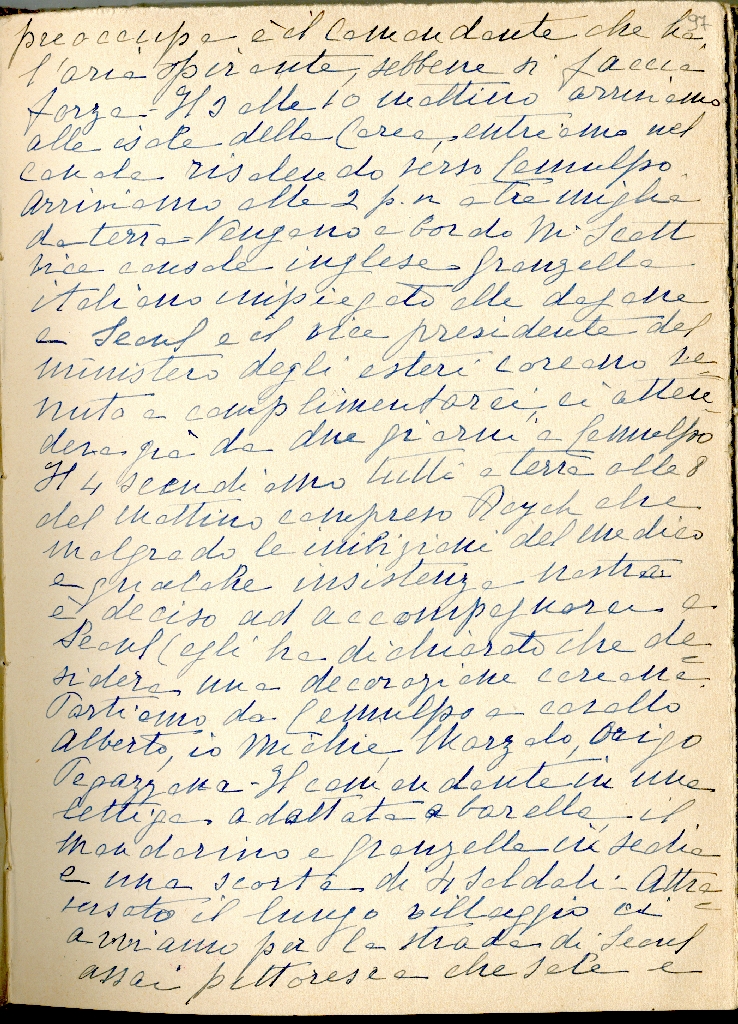 97
preoccupa è il comandante che ha
l'aria spirante, sebbene si faccia
forza - Il 3 alle 10 mattino arriviamo
alle isole della Corea, entriamo nel
canale risalendo verso Cemulpo.
Arriviamo alle 2 p.m a tre miglia
da terra - Vengono a bordo Mr Scott
vice console inglese, Granzella
italiano impiegato alle dogane
a Seoul e il vice presidente del
ministero degli esteri coreano ve=
nuto a complimentarci, ci atten=
deva già da due giorni a Cemulpo
Il 4 scendiamo tutti a terra alle 8
del mattino compreso che
malgrado le inibizioni del medico
e qualche insistenza nostra
è deciso ad accompagnarci a
Seoul (egli ha dichiarato che de=
sidera una decorazione coreana.
Partiamo da Cemulpo a cavallo
Alberto, io Michie, Marzolo, Origo
Tepazzona - Il comandante in una
lettiga adattata a barella, il
mandarino e Granzella in sedia
e una scorta di 4 soldati - Attra=
versato il lungo villaggio ci
avviamo per la strada di Seoul
assai pittoresca che sale e